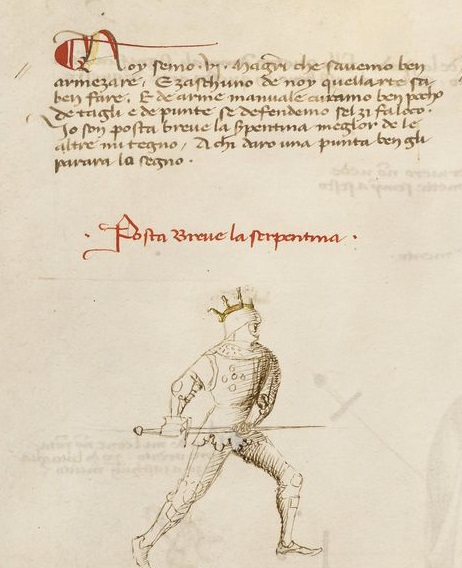 Noy semo .vj. Magistri che savemo ben
armezare, E zaschuno de noy quellarte sa
ben fare. E de arme manuale curamo ben pocho
de tagli e de punte se defendemo sel zi fa loco.
Io son posta breve la serpentina meglor de le
altre mi tegno, A chi daro una punta ben gli
parara lo segno.
Posta Breve la serpentina.